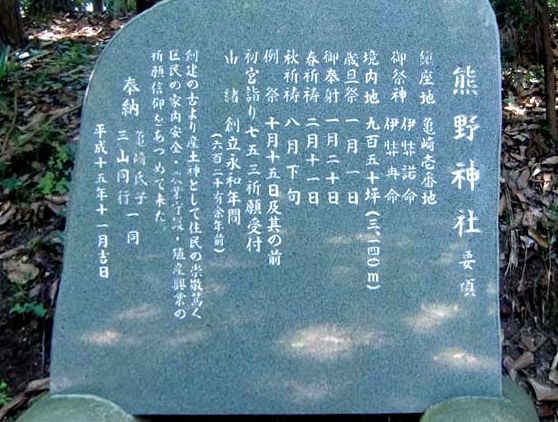 熊野神社 要項
鎮座地 亀崎壱番地
御祭神 伊弉諾命
伊弉冉命
境内地 九百五十坪(三、一四〇m)
歳旦祭 一月一日
御奉射 一月二十日
春祈祷 二月十一日
秋祈祷 八月下旬
例 祭 十月十五日及其の前
初宮詣り七五三祈願受付
由 緒 創立永和年間
(六百二十有余年前)
創建の古より産土神として住民の崇敬篤く
区民の家内安全・殖産興業の
祈願信仰をあつめて来た。
奉納 亀崎氏子一同
三山同行
平成十五年十一月吉日